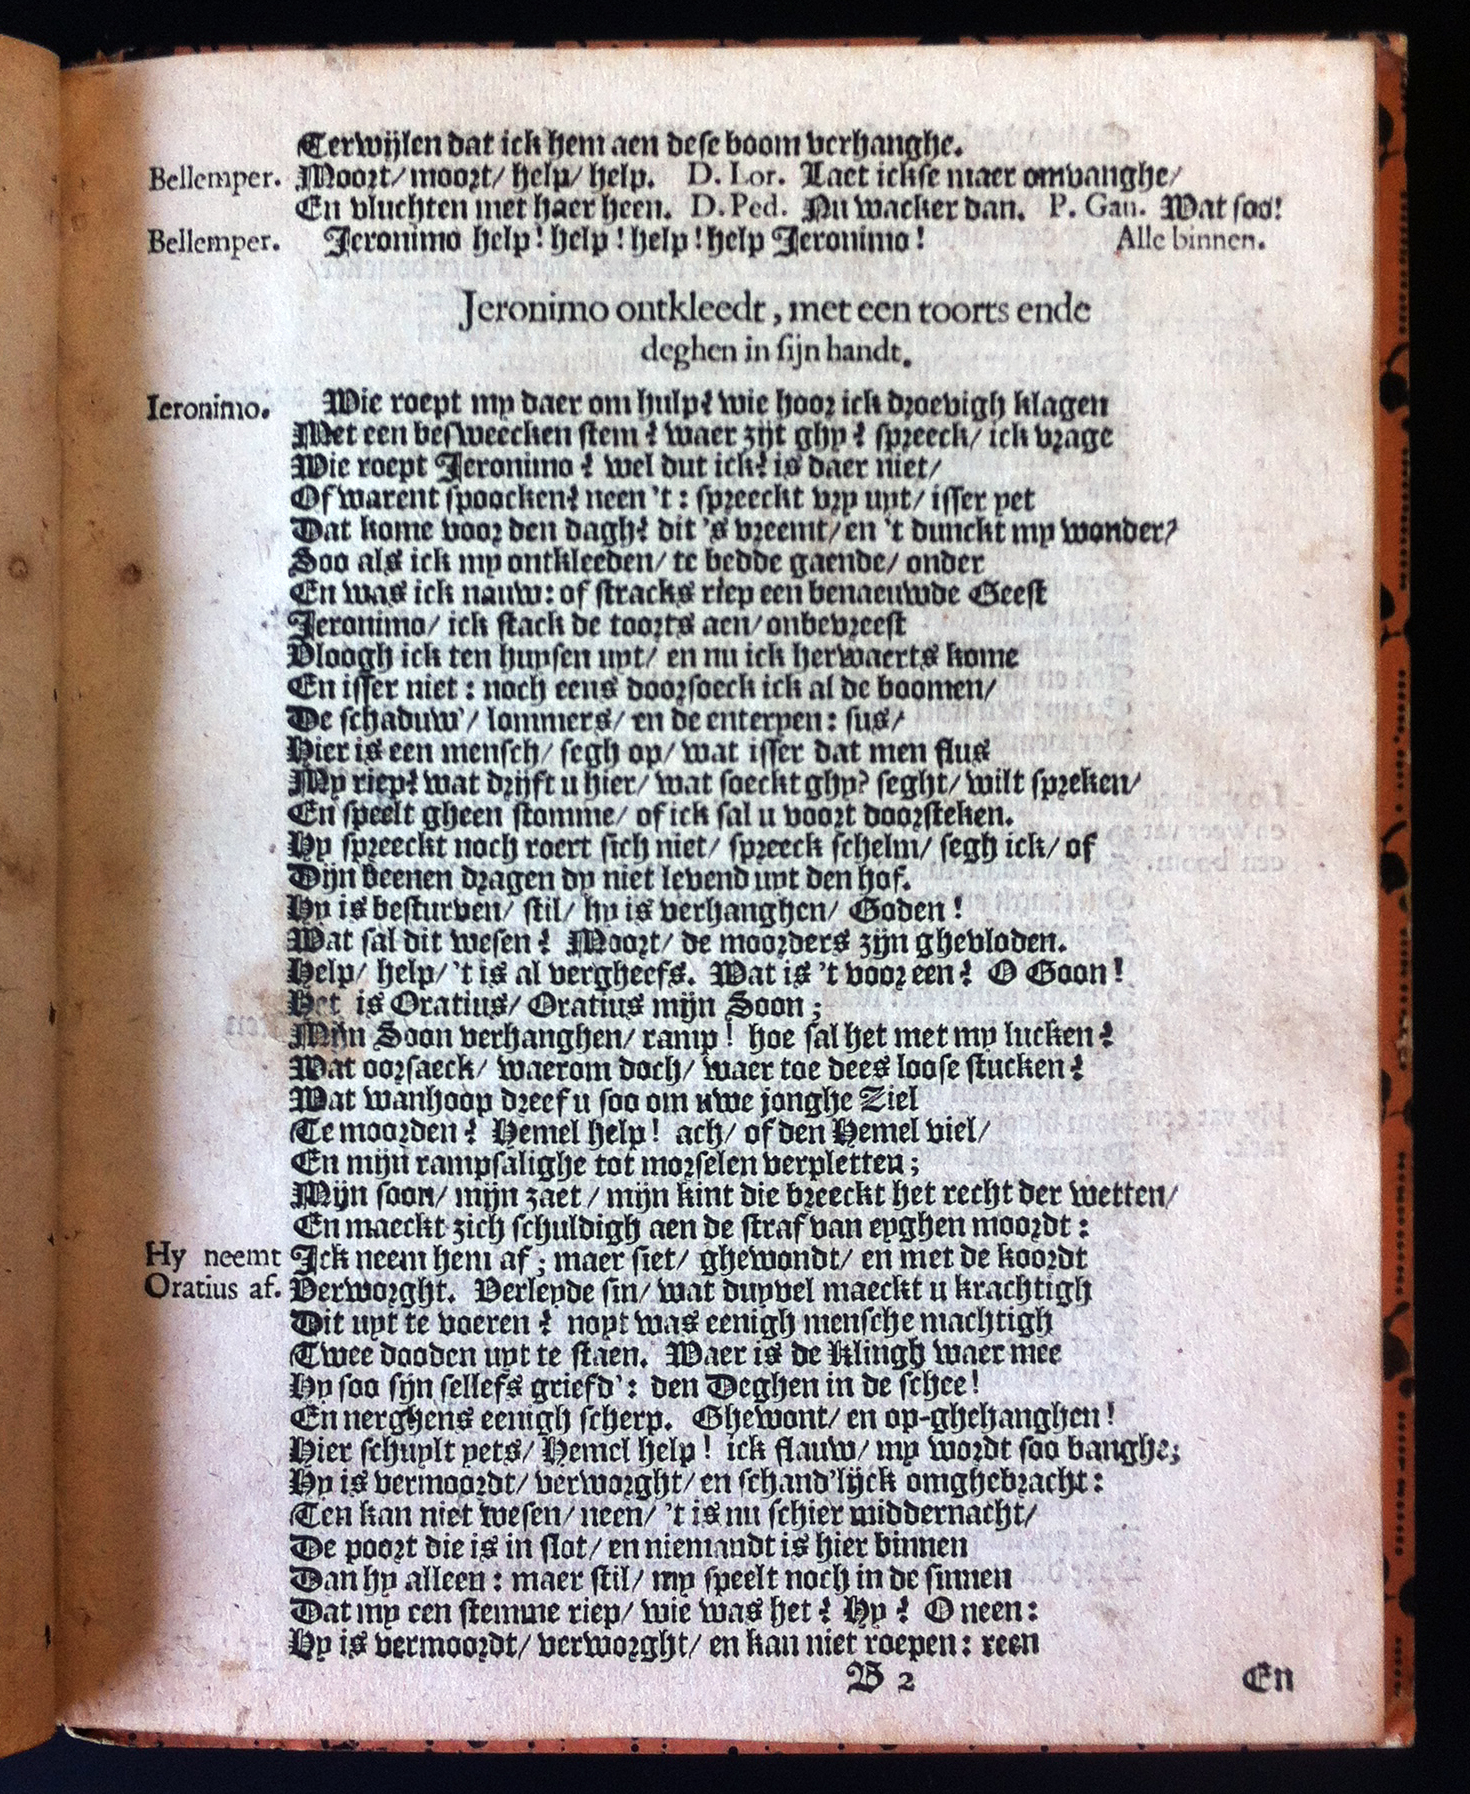 Terwijlen dat ick hem aen dese boom verhanghe.
Bellemper. Moort/ moort/ help/ help. D. Lor. Laet ickse maer omvanghe/
En vluchten met haer heen. D. Ped. Nu wacker dan. P. Gan. Wat soo!
Bellemper. Jeronimo help! help! help! help Jeronimo! Alle binnen.
Jeronimo ontkleedt, met een toorts ende
deghen in sijn handt.
Ieronimo. Wie roept my daer om hulp? wie hoor ick droevigh klagen
Met een besweecken stem? waer zijt ghy? spreeck/ ick vrage
Wie roept Jeronimo? wel dut ick? is daer niet/
Of warent spoocken? neen 't: spreeckt vry uyt/ isser yet
Dat kome voor den dagh? dit 's vreemt/ en 't dunckt my wonder?
Soo als ick my ontkleeden/ te bedde gaende/ onder
En was ick nauw: of stracks riep een benaeuwde Geest
Jeronimo/ ick stack de toorts aen/ onbevreest
Vloogh ick ten huysen uyt/ en nu ick herwaerts kome
En isser niet: noch eens doorsoeck ick al de boomen/
De schaduw'/ lommers/ en de enteryen: sus/
Hier is een mensch/ segh op/ wat isser dat men flus
My riep? wat drijft u hier/ wat soeckt ghy? seght/ wilt spreken/
En speelt gheen stomme/ of ick sal u voort doorsteken.
Hy spreeckt noch roert sich niet/ spreeck schelm/ segh ick/ of
Dijn beenen dragen dy niet levend uyt den hof.
Hy is besturven/ stil/ hy is verhanghen/ Goden!
Wat sal dit wesen? Moort/ de moorders zijn ghevloden.
Help/ help/ 't is al vergheefs. Wat is 't voor een? O Goon!
Het is Oratius/ Oratius mijn Soon;
Mijn Soon verhanghen/ ramp! hoe sal het met my lucken?
Wat oorsaeck/ waerom doch/ waer toe dees loose stucken?
Wat wanhoop dreef u soo om uwe jonghe Ziel
Te moorden? Hemel help! ach/ of den Hemel viel/
En mijn rampsalighe tot morselen verpletten;
Mijn soon/ mijn zaet/ mijn kint die breeckt het recht der wetten/
En maeckt zich schuldigh aen de straf van eyghen moordt:
Hy neemt Ick neem hem af; maer siet/ ghewondt/ en met de koordt
Oratius af. Verworght. Verleyde sin/ wat duyvel maeckt u krachtigh
Dit uyt te voeren? noyt was eenigh mensche machtigh
Twee dooden uyt te staen. Waer is de Klingh waer mee
Hy soo sijn sellefs griefd': den Deghen in de schee!
En nerghens eenigh scherp. Ghewont/ en op-ghehanghen!
Hier schuylt yets/ Hemel help! ick flauw/ my wordt soo banghe;
Hy is vermoordt/ verworght/ en schand'lijck omghebracht:
Ten kan niet wesen/ neen/ 't is nu schier middernacht/
De poort die is in slot/ en niemandt is hier binnen
Dan hy alleen: maer stil/ my speelt noch in de sinnen
Dat my een stemme riep/ wie was het? Hy? O neen:
Hy is vermoordt/ verworght/ en kan niet roepen: reen
B 2 En